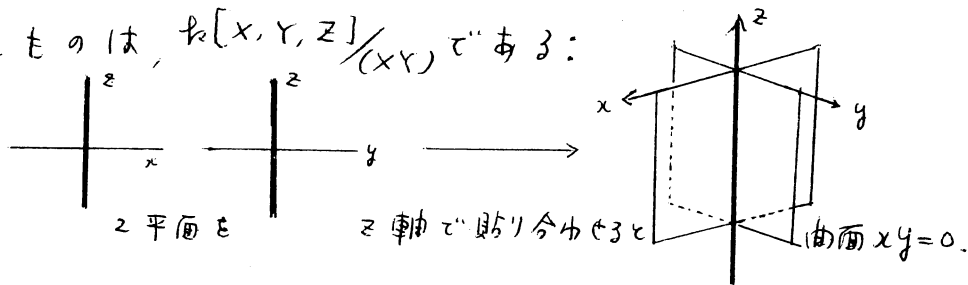 ものは, k[X, Y, Z]/(XY) である:
z z z
x y x y
2平面を z軸で貼り合わせると 曲面 xy=0.